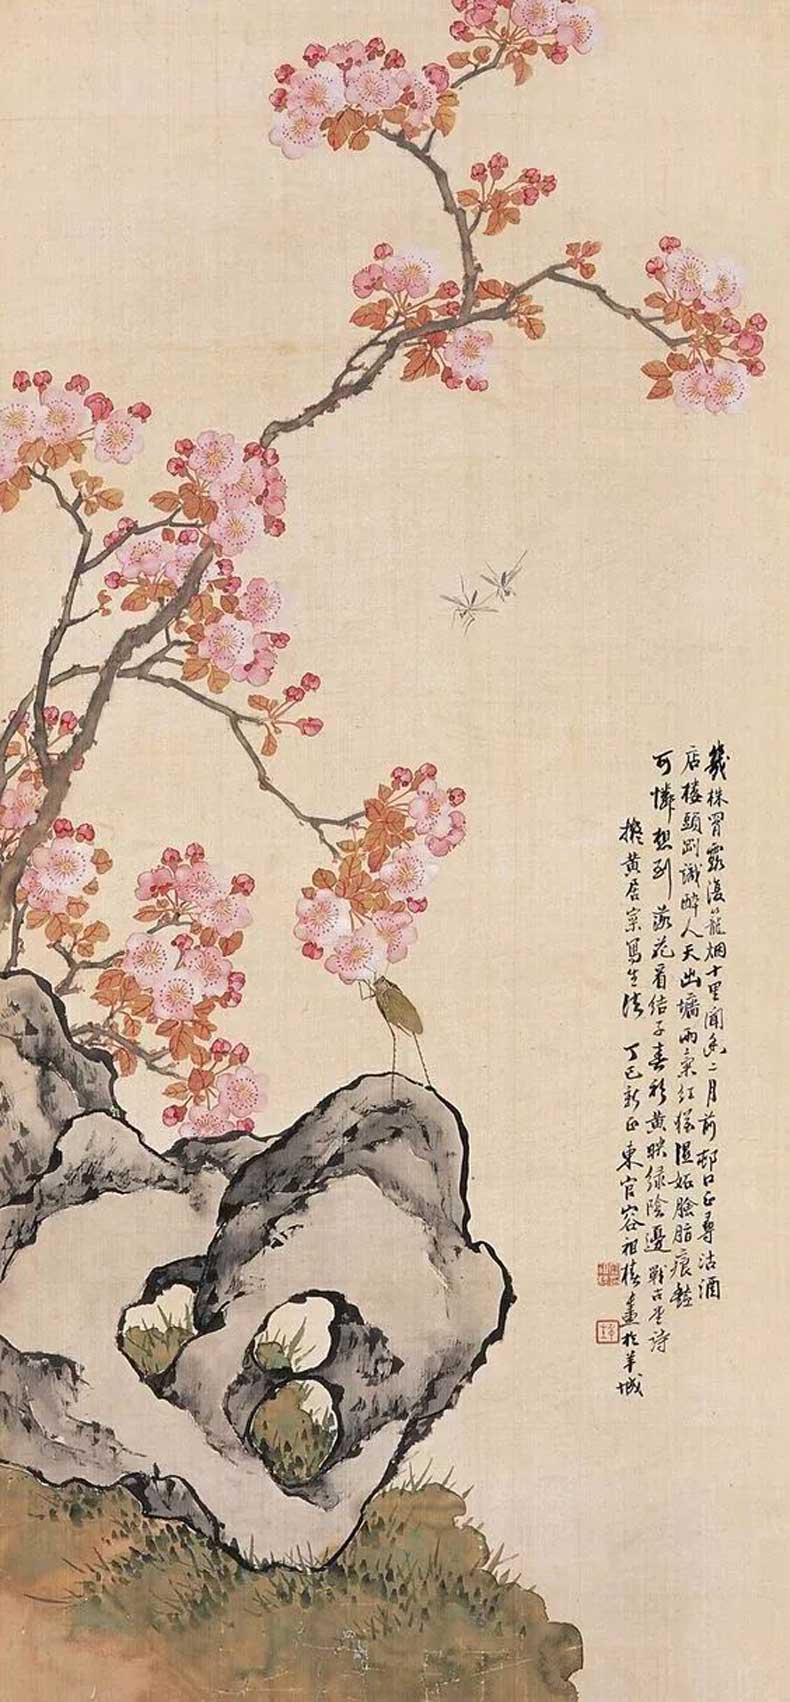 幾株罥霧復籠烟十里聞香二月前邨口正尋沽酒
店樓頭剛識醉人天出墻雨氣紅猶濕妬臉脂痕豔
可憐想到落花看結子春衫黃映綠陰邊 古堂詩
擬黃居寀寫生法 丁巳新正東官容祖椿畫於羊城